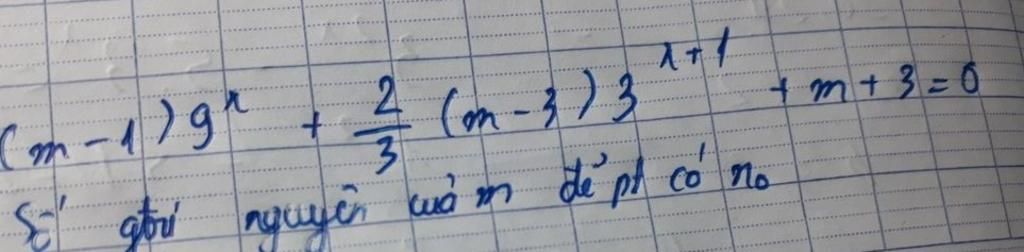 (m-1)9^x + 2/3 (m-3)3^{x+1} + m+3=0
Số gtrị nguyên của m để pt có n₀